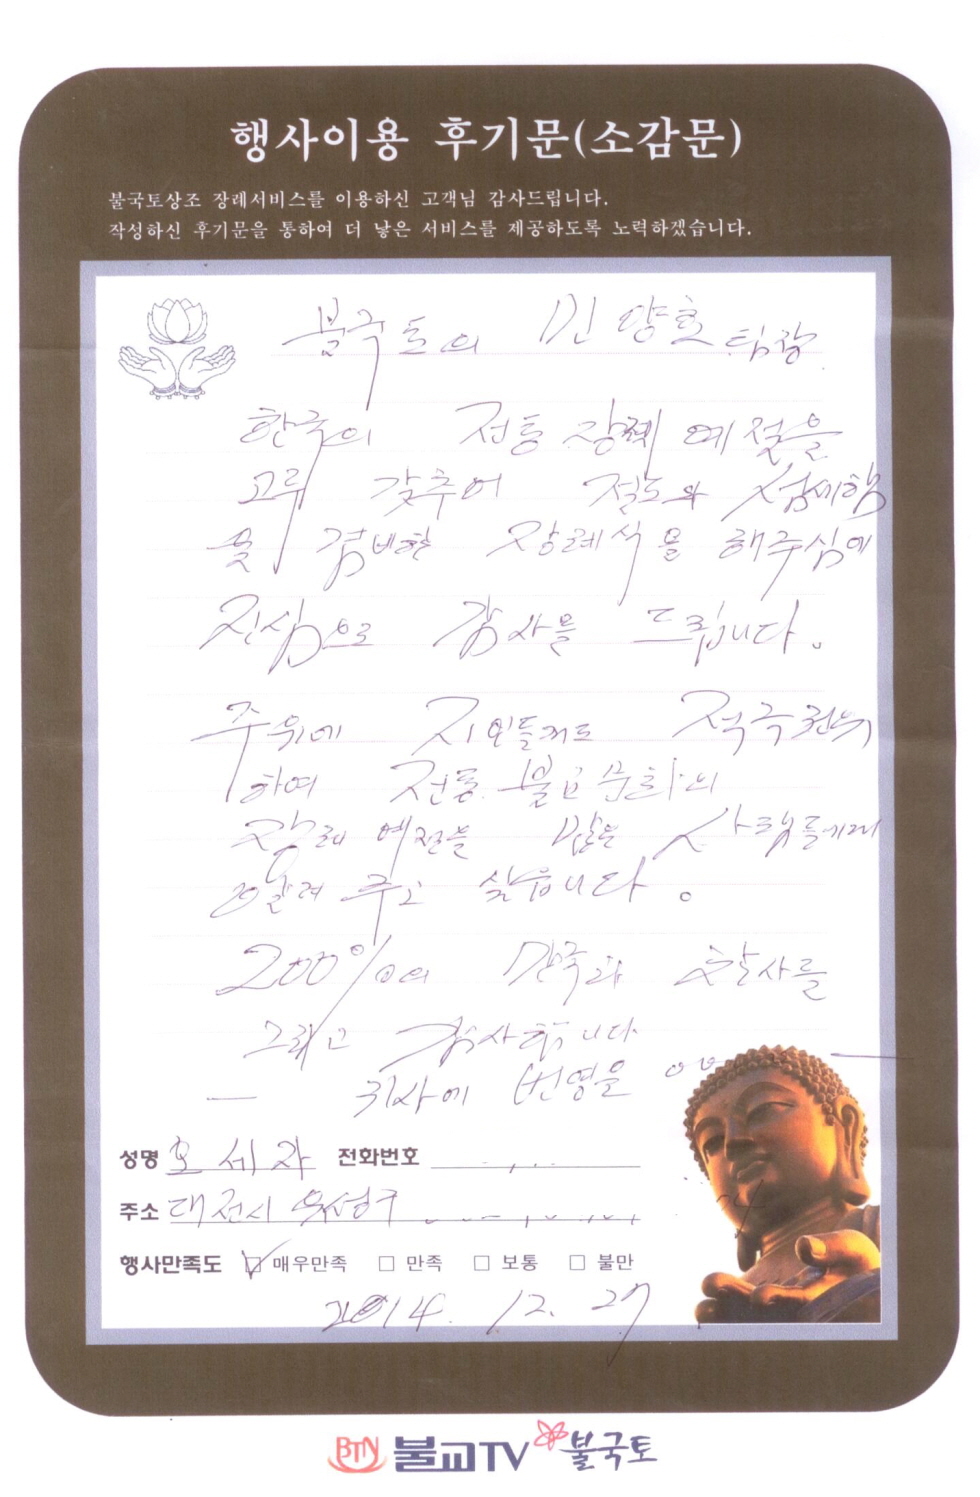 행사이용 후기문(소감문)
불국토상조 장례서비스를 이용하신 고객님 감사드립니다.
작성하신 후기문을 통하여 더 낳은 서비스를 제공하도록 노력하겠습니다.
불국토의 민양호 팀장
한국의 전통 장례 예절을
고루 갖추어 절도와 섬세함
을 겸비한 장례식을 해주심에
진심으로 감사를 드립니다.
주위에 지인들게도 적극 권유
하여 전통 불교문화의
장례 예절을 많은 사람들에게
알려 주고 싶습니다.
200%의 만족과 찬사를
그리고 감사합니다
귀사에 번영을
성명 호세자 전화번호
주소 대전시 유성구
행사만족도 ☑ 매우만족 □ 만족 □ 보통 □ 불만
2014. 12. 27
BTN 불교TV 불국토